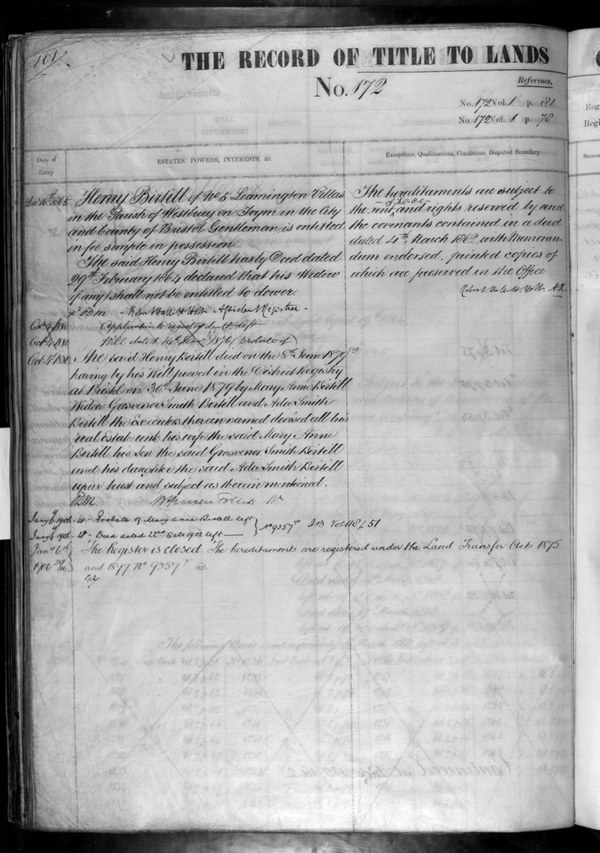 101
THE RECORD OF TITLE TO LANDS
No. 172
Reference.
No. 172 Vol. 1 p. 81
No. 172 Vol. 1 p. 78
Date of Entry
ESTATES, POWERS, INTERESTS, &c.
Exceptions, Qualifications, Conditions, Disputed Boundary
Henry Birtill of No 5 Leamington Villas
in the Parish of Westbury on Trym in the City
and County of Bristol Gentleman is entitled
in fee simple in possession
The said Henry Birtill has by Deed dated
29th February 1864 declared that his Widow
if any shall not be entitled to dower.
The hereditaments are subject to
the rent and rights reserved by and
the covenants contained in a deed
dated 4th March 1862 with Memoran-
dum endorsed, printed copies of
which are preserved in the Office
Assistant Registrar
Oct 4/80
Oct 4/80 Will dated
Oct 4/80 The said Henry Birtill died on the 8th June 1879
having by his Will proved in the District Registry
at Bristol on 30th June 1879 by Mary Anne Birtill
Widow Grosvenor Smith Birtill and Ada Smith
Birtill the Executors therein named devised all his
real Estate unto his wife the said Mary Anne
Birtill his Son the said Grosvenor Smith Birtill
and his daughter the said Ada Smith Birtill
upon trust and subject as therein mentioned.
Probate of Mary Anne Birtill left
Deed dated 22nd left
No 9357
The Register is closed. The hereditaments are registered under the Land Transfer Acts 1875
and 1897 No 9357